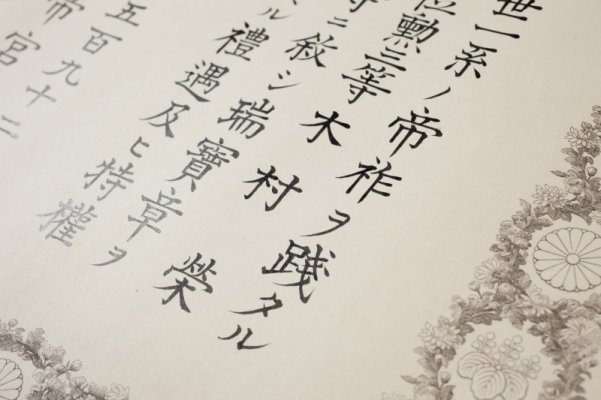 世一系ノ帝祚ヲ踐タル
位勳三等木村榮
ニ敘シ瑞寶章ヲ
ル禮遇及ヒ特權
五百九十二
帝宮